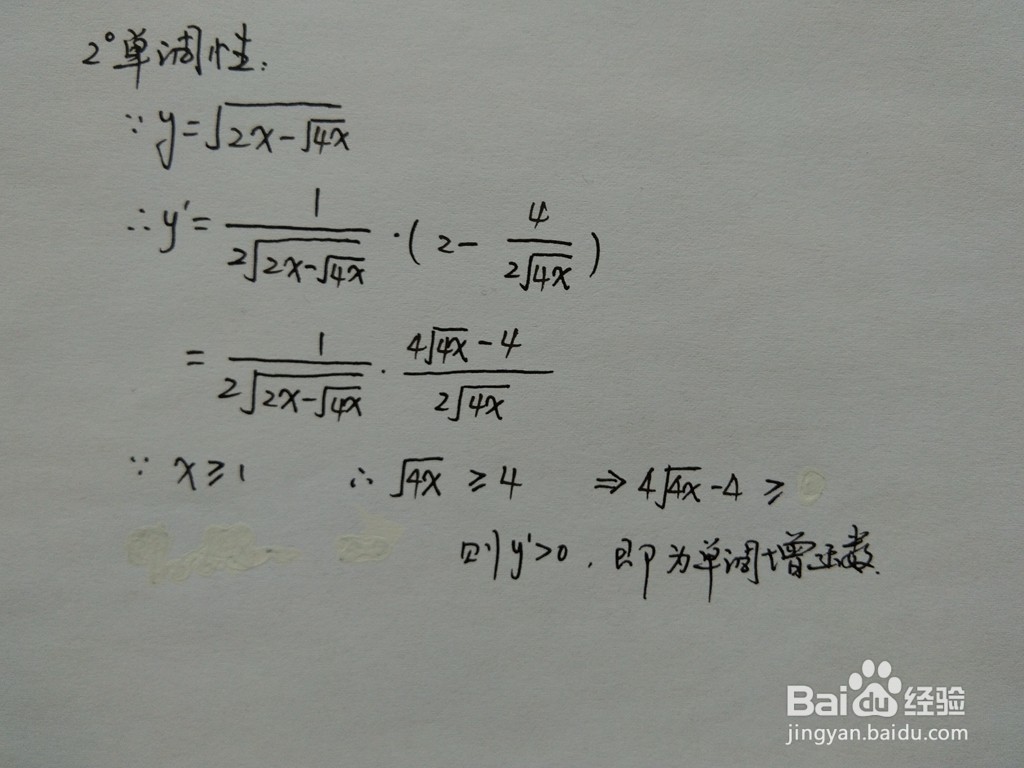 2°单调性:
∵ y=√(2x-√(4x))
∴ y′= 1/(2√(2x-√(4x))) · (2- 4/(2√(4x)))
= 1/(2√(2x-√(4x))) · (4√(4x)-4)/(2√(4x))
∵ x≥1 ∴ √4x ≥4 ⇒ 4√4x-4 ≥
则y′>0，即为单调增函数.
Bai 经验
jingyan.baidu.com